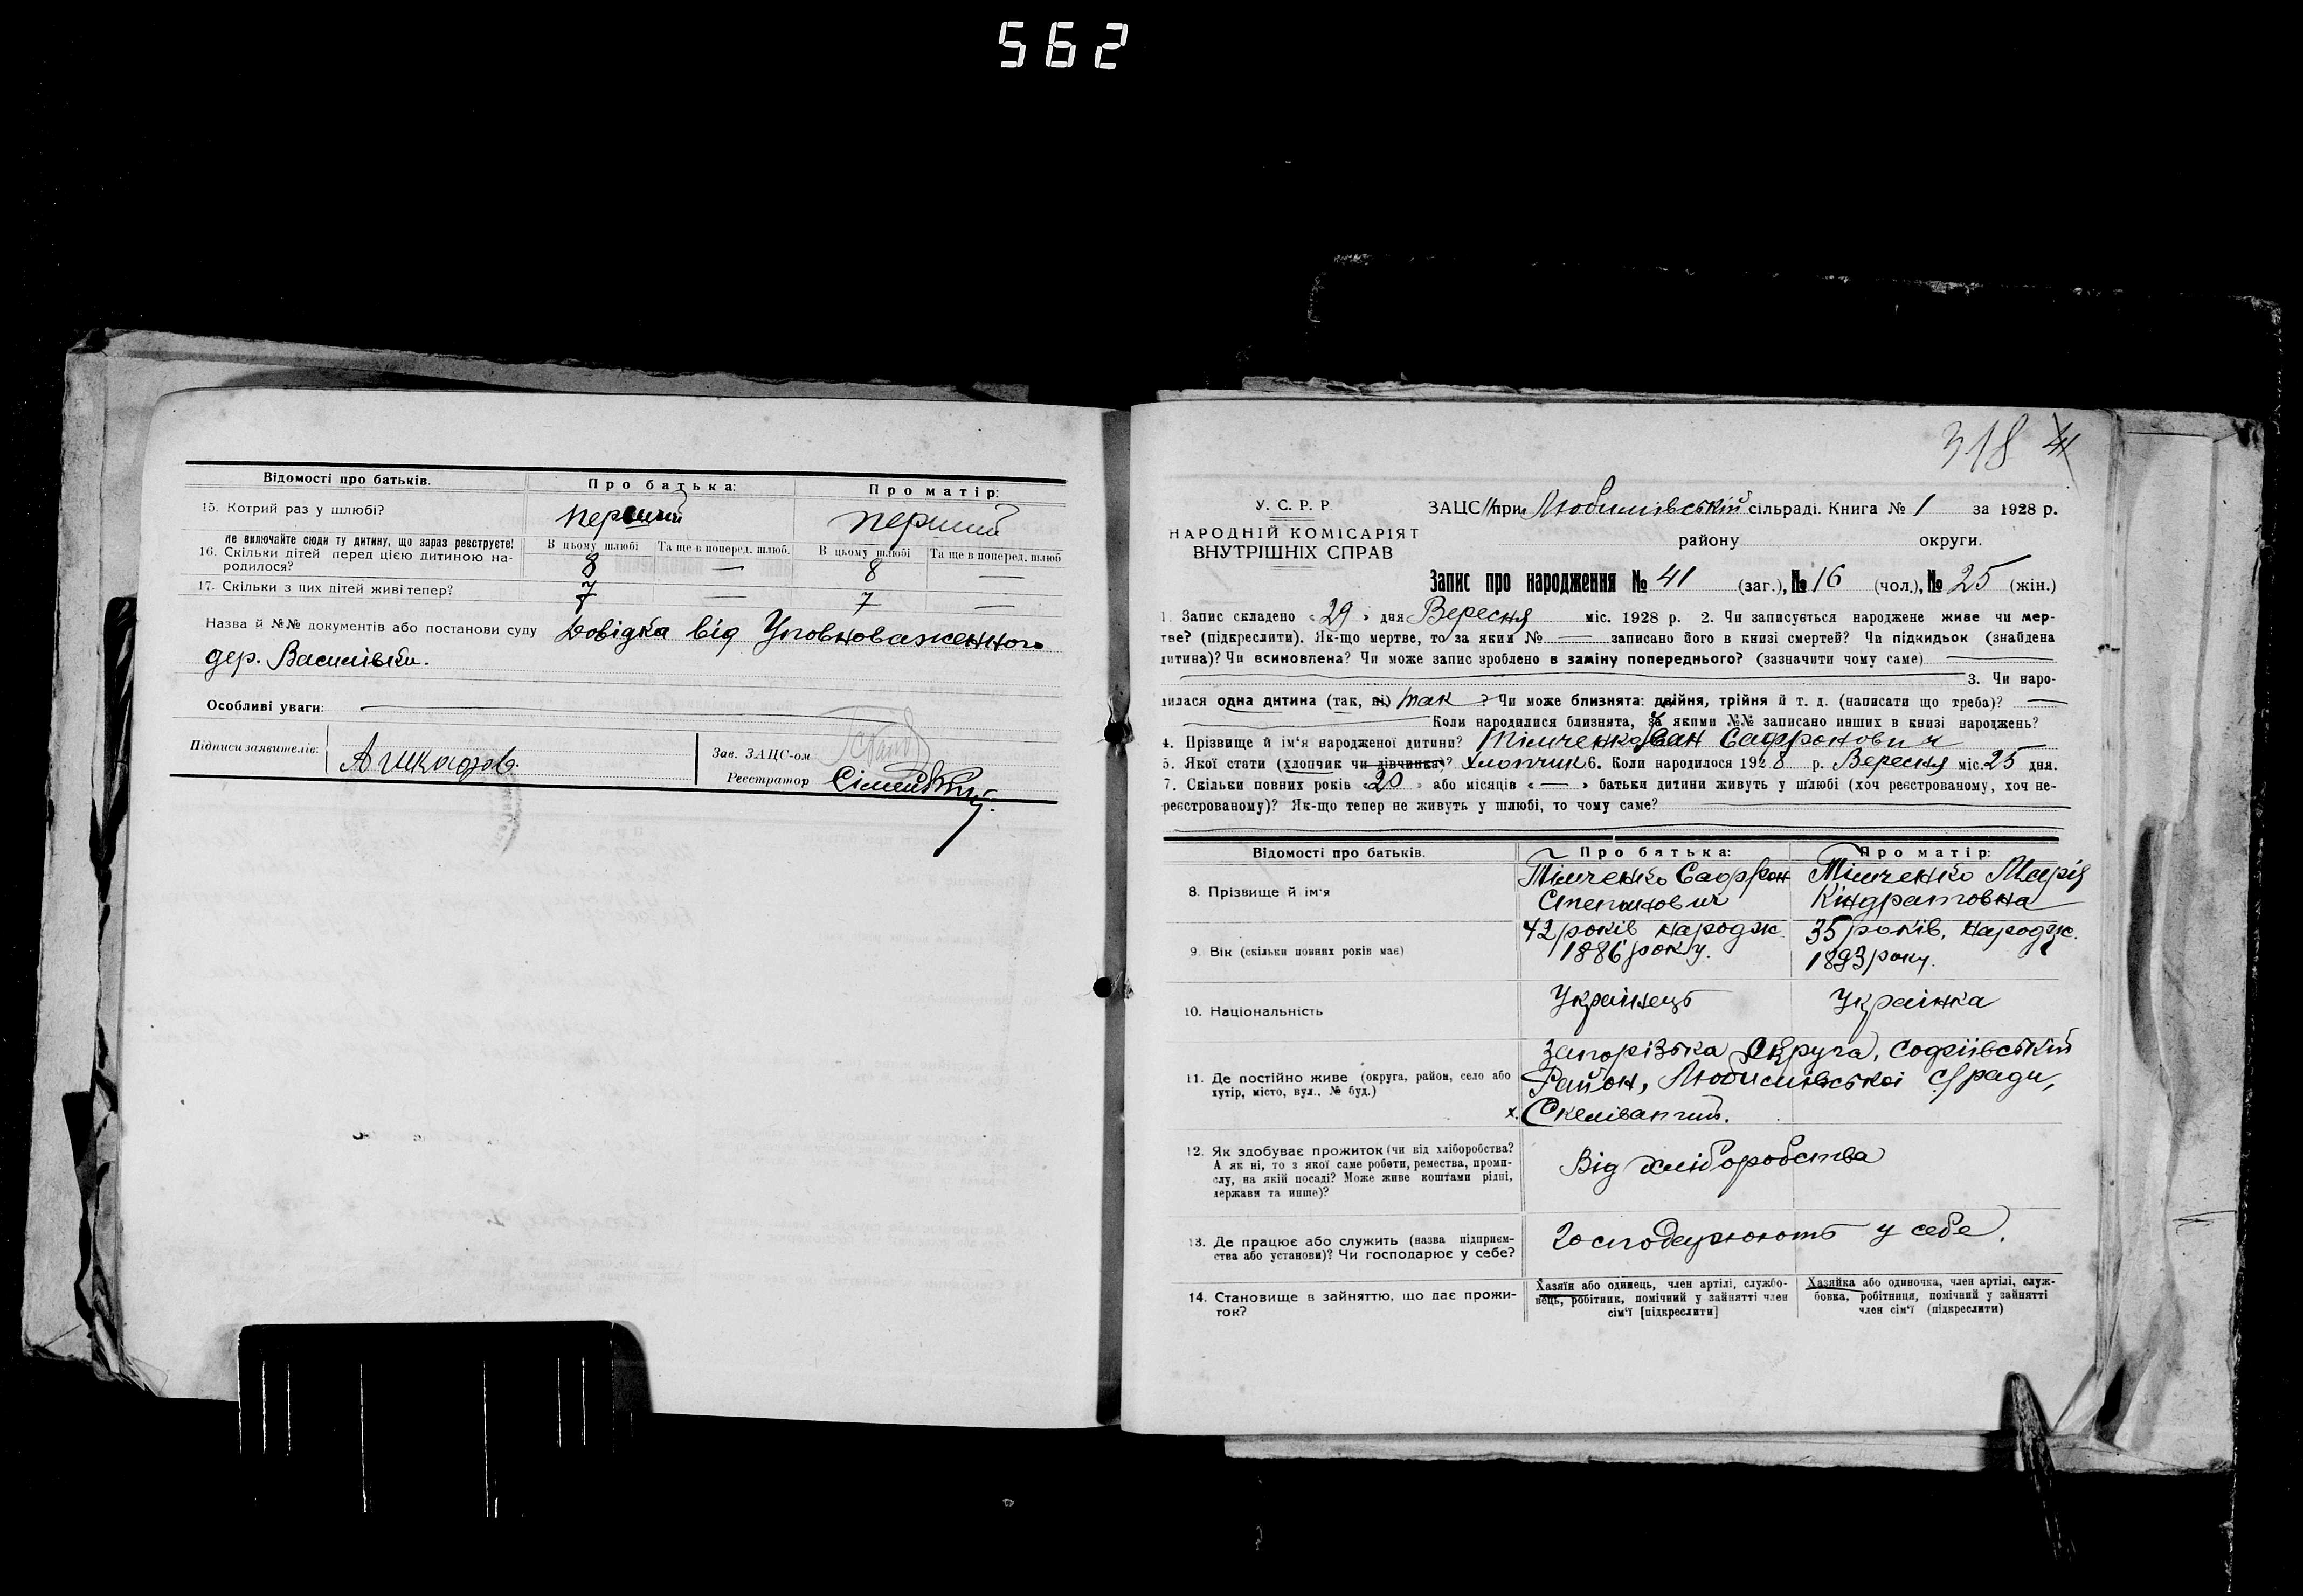 562
Відомості про батьків. Про батька: Про матір:
15. Котрий раз у шлюбі? перший перший
Не включайте сюди ту дитину, що зараз реєструєте!
В цьому шлюбі Та ще в поперед. шлюб. В цьому шлюбі Та ще в поперед. шлюб
16. Скільки дітей перед цією дитиною на-
родилося? 8 — 8 —
17. Скільки з цих дітей живі тепер? 7 — 7 —
Назва й №№ документів або постанови суду Довідка від Уповноваженного
дер. Василівки.
Особливі уваги:
Підписи заявителів:
Зав. ЗАЦС-ом
Реєстратор
318 41
У. С. Р. Р.
НАРОДНІЙ КОМІСАРІЯТ
ВНУТРІШНІХ СПРАВ
ЗАЦС при Любимівській сільраді. Книга № 1 за 1928 р.
району округи.
Запис про народження № 41 (заг.), № 16 (чол.), № 25 (жін.)
1. Запис складено «29» дня Вересня міс. 1928 р. 2. Чи записується народжене живе чи мер-
тве? (підкреслити). Як-що мертве, то за яким № — записано його в книзі смертей? Чи підкидьок (знайдена
дитина)? Чи всиновлена? Чи може запис зроблено в заміну попереднього? (зазначити чому саме) —
3. Чи наро-
дилася одна дитина (так, ні) так ? Чи може близнята: двійня, трійня й т. д. (написати що треба)? —
Коли народилися близнята, за якими №№ записано инших в книзі народжень?
4. Прізвище й ім'я народженої дитини? Тімченко Іван Сафронович
5. Якої стати (хлопчик чи дівчинка)? Хлопчик 6. Коли народилося 1928 р. Вересня міс. 25 дня.
7. Скільки повних років «20» або місяців «—» батьки дитини живуть у шлюбі (хоч реєстрованому, хоч не-
реєстрованому)? Як-що тепер не живуть у шлюбі, то чому саме?
Відомості про батьків. Про батька: Про матір:
8. Прізвище й ім'я
Тімченко Сафрон Тімченко Марія
Степанович Кіндратовна
9. Вік (скільки повних років має)
42 років народж. 35 років, народж.
1886 року. 1893 року.
10. Національність Українець Українка
11. Де постійно живе (округа, район, село або
хутір, місто, вул., № буд.)
Запорізька Округа, Софіївський
Район, Любимівської с/ради,
х. Скеліватий.
12. Як здобуває прожиток (чи від хліборобства?
А як ні, то з якої саме роботи, ремества, проми-
слу, на якій посаді? Може живе коштами рідні,
держави та инше)?
Від хліборобства
13. Де працює або служить (назва підприєм-
ства або установи)? Чи господарює у себе?
Господарюють у себе.
14. Становище в зайняттю, що дає прожи-
ток?
Хазяїн або одинець, член артілі, службо-
вець, робітник, помічний у зайнятті член
сім'ї [підкреслити]
Хазяйка або одиночка, член артілі, служ-
бовка, робітниця, помічний у зайнятті
член сім'ї (підкреслити)